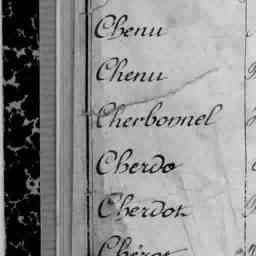 Chenu
Chenu
Cherbonnel
Cherdo
Cherdot
Chérot